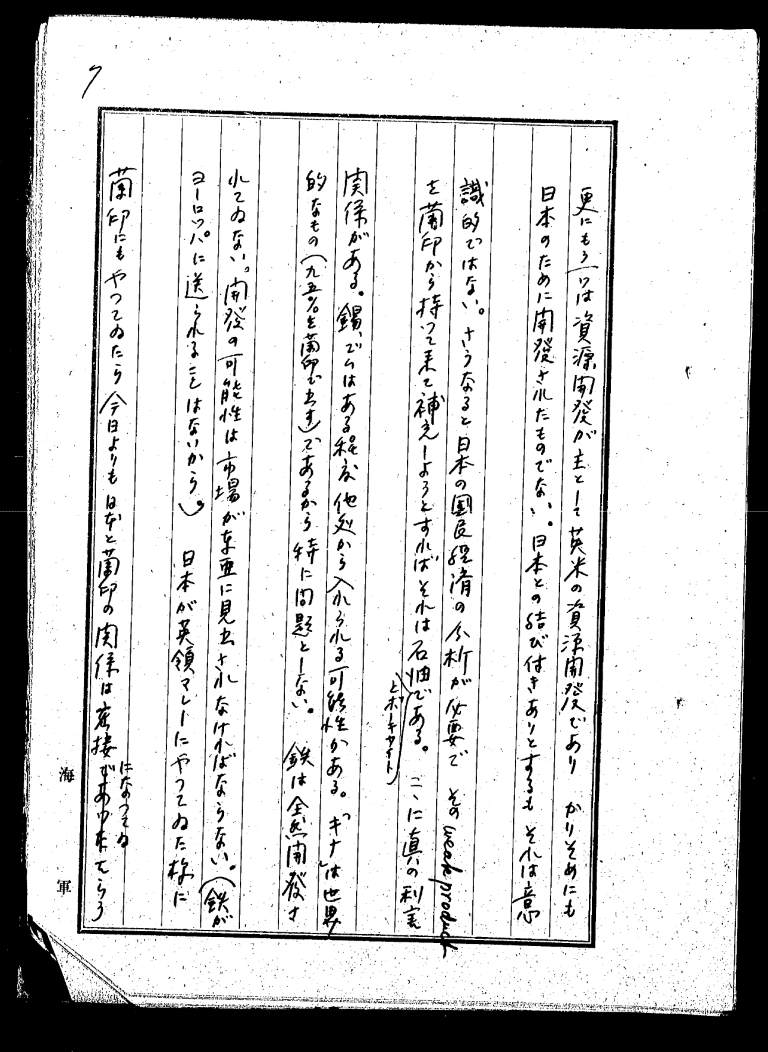 7
更にもう一つは資源開発が主として英米の資源開発であり かりそめにも
日本のために開発されたものでない。日本との結び付きありとするも それは意
識的ではない。さうなると日本の国民経済の分析が必要で その weak product
を蘭印から持つて来て補充しようとすればそれは石油である。 こゝに真の利害
とボーキサイト
関係がある。錫、ゴムはある程度他処から入れられる可能性がある。「キナ」は世界
的なもの(九五%を蘭印で出す)であるから特に問題としない。 鉄は全然開発さ
れてゐない。開発の可能性は市場が東亜に見出されなければならない。(鉄が
ヨーロッパに送られることはないから) 日本が英領マレーにやつてゐた様に
蘭印にもやつてゐたら今日よりもほとんど蘭印の関係は密接
になつてゐ
たらう
海軍